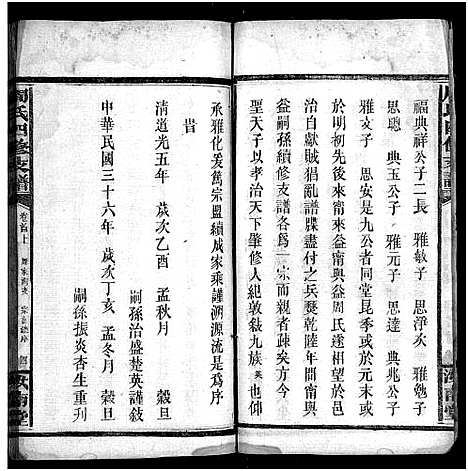 周氏四修支譜
汝南堂
福典祥公子二長　雅敏子　思淨次　雅勉子
思聰　典玉公子　雅元子　思虔　雅亮子
雅文子　思安是九公者同堂昆季或於元代或於
明先後來甯來益甯與益周氏遂歧而為二始於邑
治白獻賊猖亂譜牒盡付之兵燹乾隆年間甯與
益嗣孫續修支譜各為一宗而親者疎矣方今
聖天子以孝治天下肇修人紀敦敍九族英也仰
承雅化爰篤宗盟續成家乘謹溯源流是為序
旹
清道光五年　歲次乙酉　孟秋月　穀旦
嗣孫治盛楚英謹敍
中華民國三十六年　歲次丁亥　孟冬月　穀旦
嗣孫振炎杏生重刊
周氏四修支譜
卷首上
汝南堂